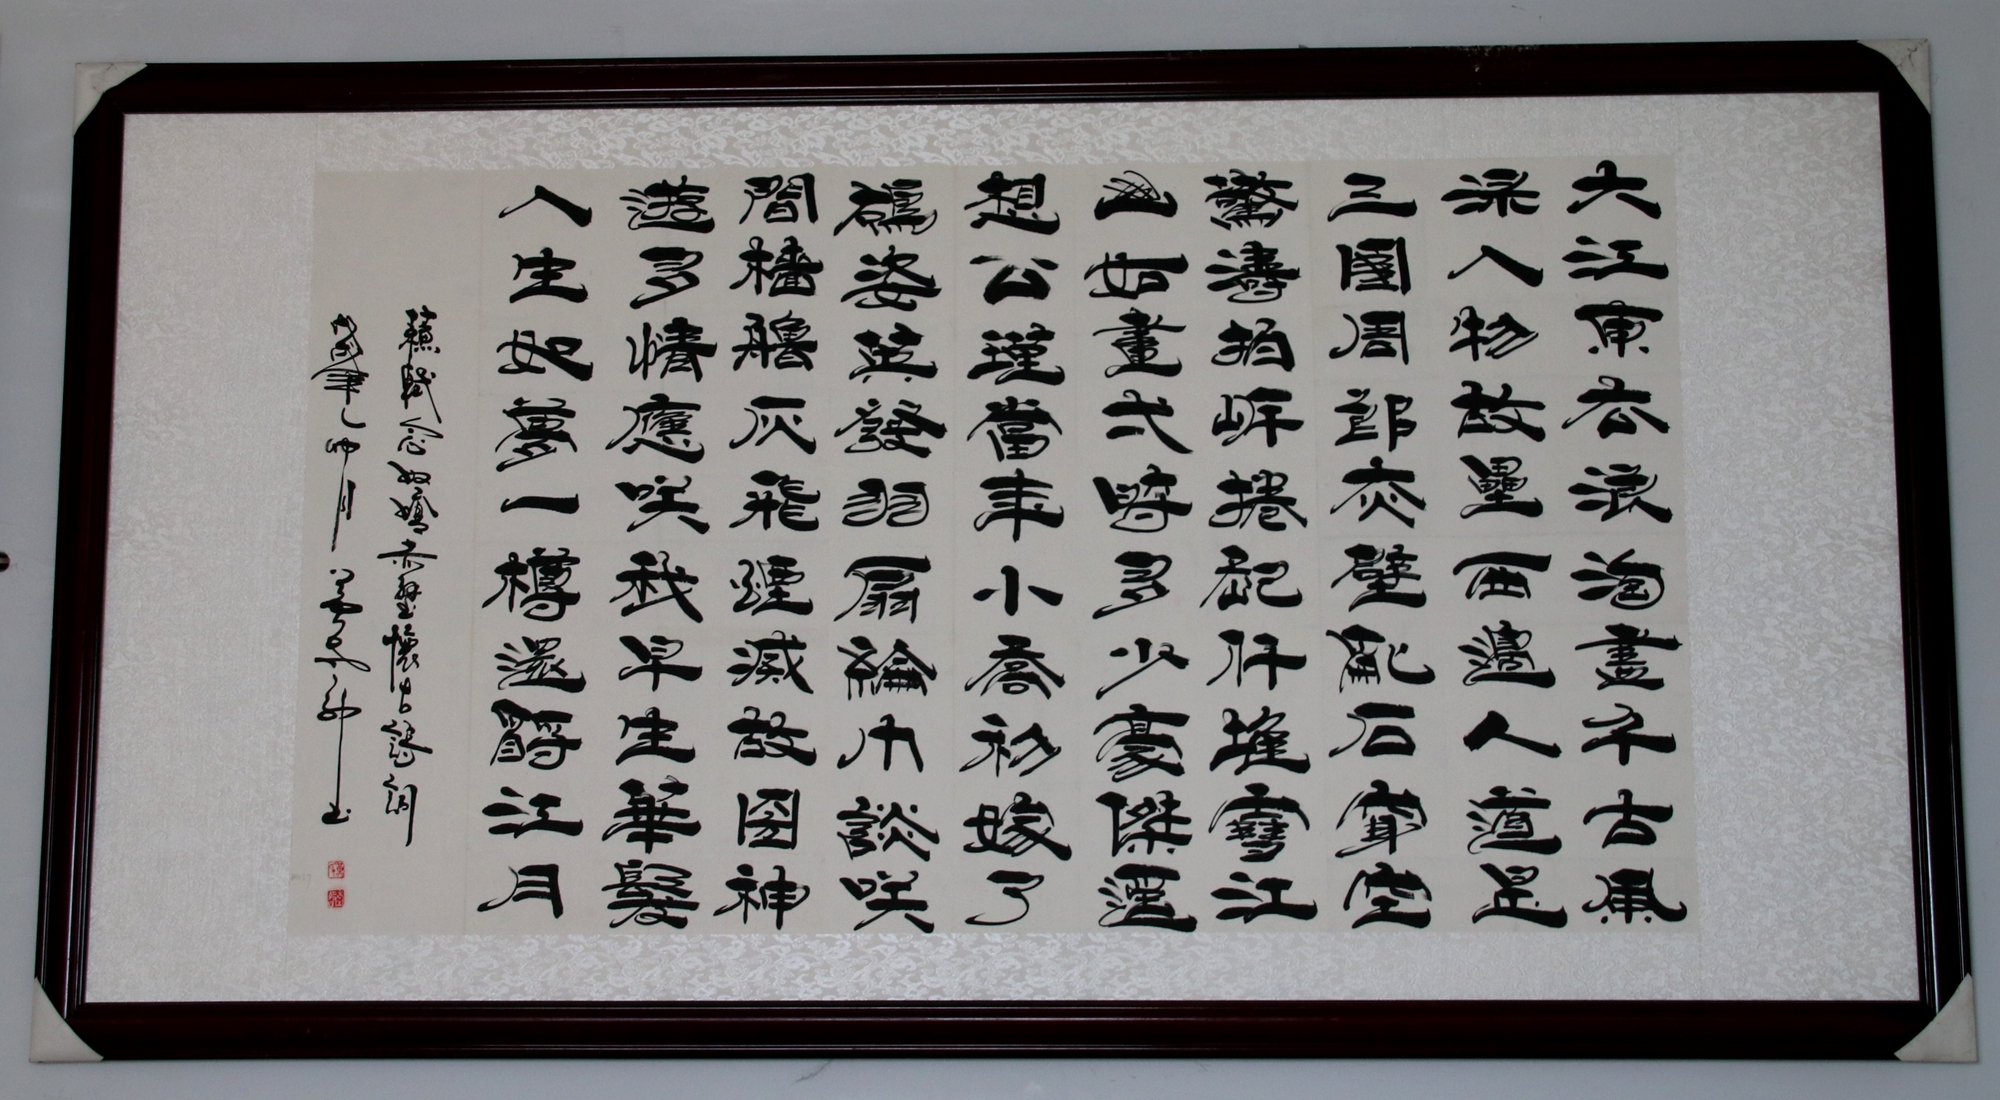 大江東去浪淘盡千古風
流人物故壘西邊人道是
三國周郎赤壁亂石穿空
驚濤拍岸捲起仟堆雪江
山如畫弌時多少豪傑遥
想公瑾當年小喬初嫁了
雄姿英發羽扇綸巾談咲
間檣艪灰飛煙滅故國神
遊多情應咲我早生華髮
人生如夢一樽還酹江月
蘇軾念奴嬌赤壁懷古詞
戊戌年乙卯月书